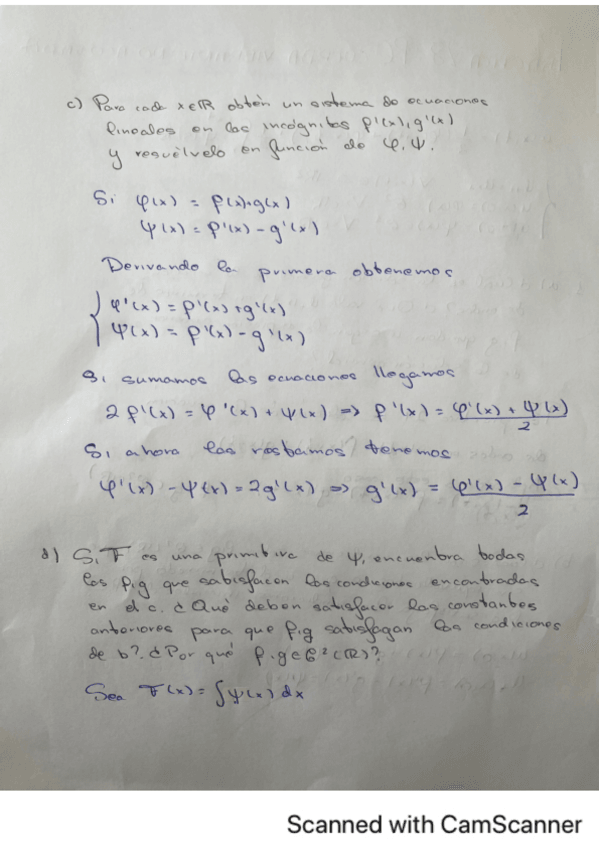 c) Para cada x∈ℝ obtén un sistema de ecuaciones
lineales en las incógnitas f'(x), g'(x)
y resuélvelo en función de φ, ψ.
Si φ(x) = f(x)+g(x)
ψ(x) = f'(x) - g'(x)
Derivando la primera obtenemos
{ φ'(x) = f'(x) + g'(x)
ψ(x) = f'(x) - g'(x)
Si sumamos las ecuaciones llegamos
2f'(x) = φ'(x) + ψ(x) => f'(x) = (φ'(x) + ψ(x))/2
Si ahora las restamos tenemos
φ'(x) - ψ(x) = 2g'(x) => g'(x) = (φ'(x) - ψ(x))/2
d) Si F es una primitiva de ψ, encuentra todas
las f,g que satisfacen las condiciones encontradas
en el c. ¿Qué deben satisfacer las constantes
anteriores para que f,g satisfagan las condiciones
de b? ¿Por qué f,g∈C²(ℝ)?
Sea F(x) = ∫ψ(x) dx
Scanned with CamScanner